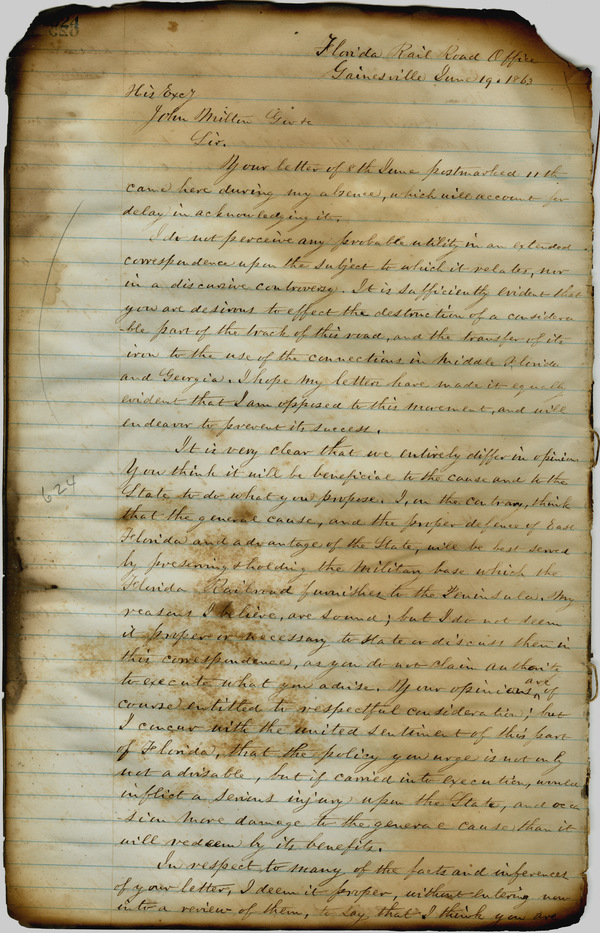 624
Florida Rail Road Office
Gainesville June 19. 1863
His Excy
John Milton Gov &c
Sir.
Your letter of 8th June postmarked 11th
came here during my absence, which will account for
delay in acknowledging it.
I do not perceive any probable utility in an extended
correspondence upon the subject to which it relates, nor
in a discursive controversy. It is sufficiently evident that
you are desirous to effect the destruction of a considera
ble part of the track of this road, and the transfer of its
iron to the use of the connections in Middle Florida
and Georgia. I hope my letters have made it equally
evident that I am opposed to this movement, and will
endeavor to prevent its success.
It is very clear that we entirely differ in opinion
You think it will be beneficial to the cause and to the
State, to do what you propose. I, on the contrary, think
that the general cause, and the proper defence of East
Florida and advantage of the State, will be best served
by preserving & holding the Military base which the
Florida Railroad furnishes to the Peninsula. My
reasons I believe, are sound; but I do not deem
it proper or necessary to state or discuss them in
this correspondence, as you do not claim authority
to execute what you advise. Your opinions are of
course entitled to respectful consideration; but
I concur with the united sentiment of this part
of Florida, that the policy you urge is not only
not advisable, but if carried into execution, would
inflict a serious injury upon the State, and occa
sion more damage to the general cause than it
will redeem by its benefits.
In respect to many of the facts and inferences
of your letter, I deem it proper, without entering now
into a review of them, to say, that I think you are
624